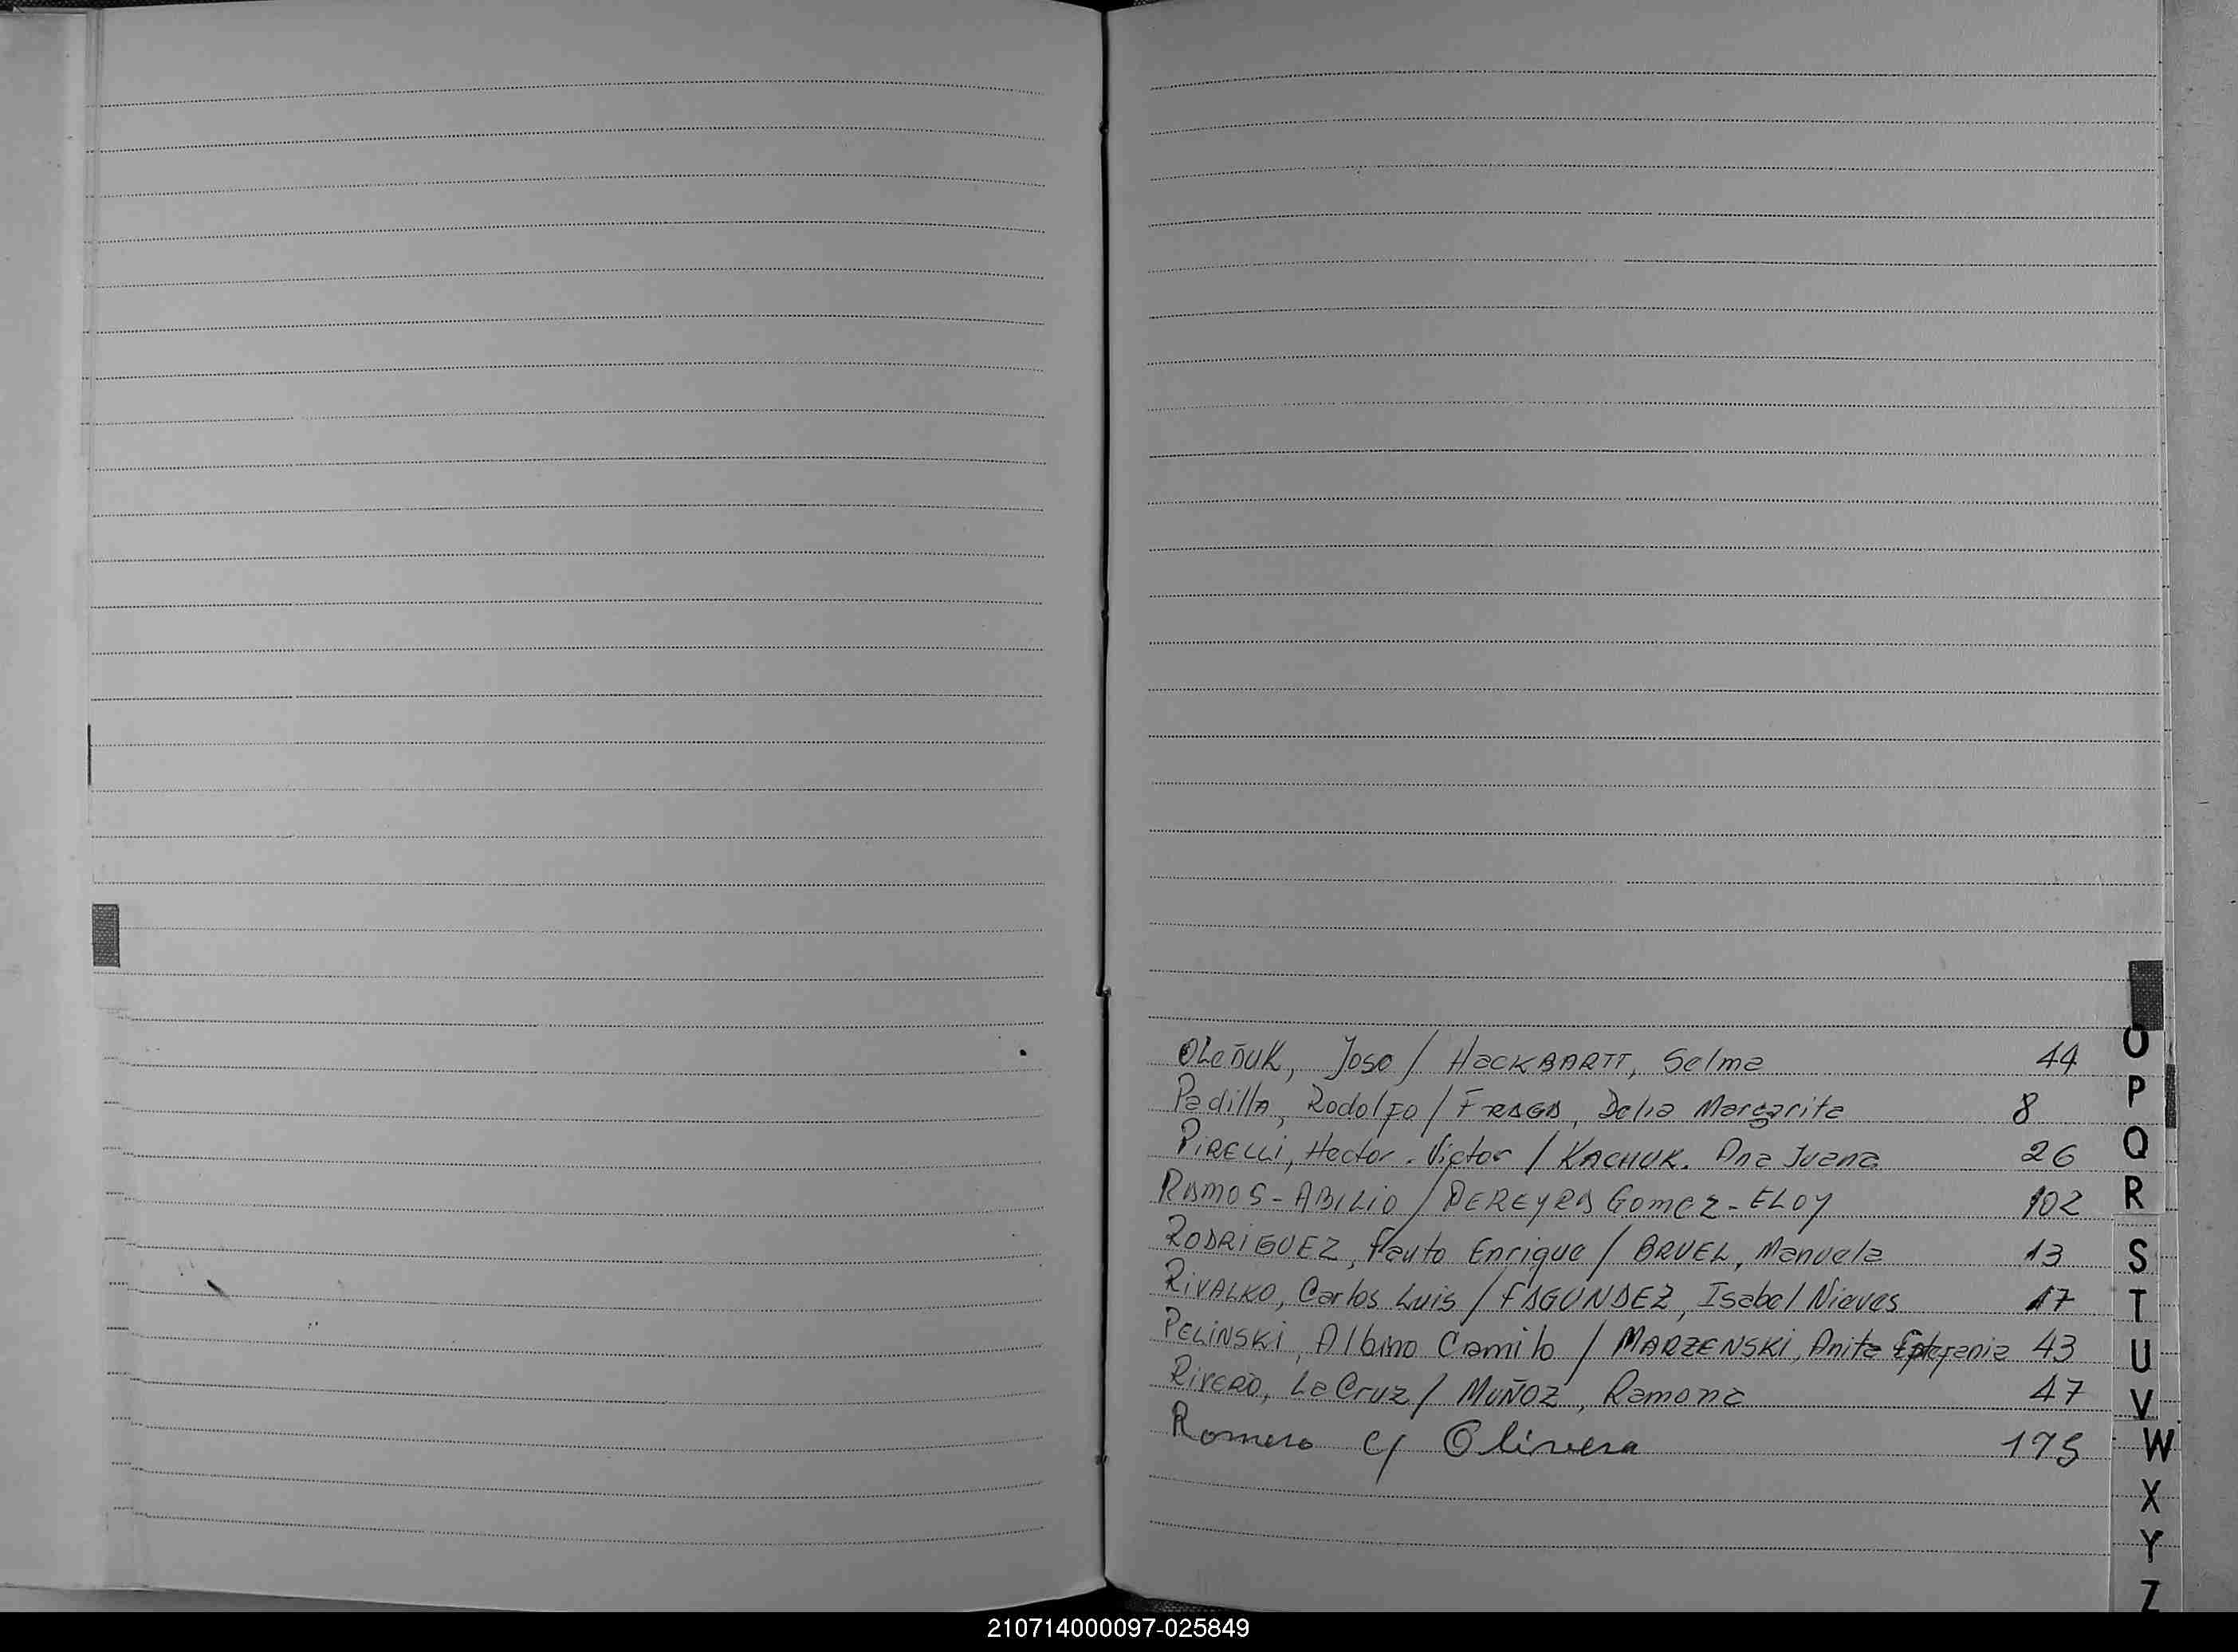 OLeñUK, Jose / HackBARTT, Selma 44
Padilla, Rodolfo / FRAGA, Delia Margarita 8
PiRELLi, Hector. Victor / KACHUK. Ana Juana 26
RAMOS - ABILIO / PEREYRA GOMEZ - ELOY 102
RODRIGUEZ, Fauto Enrique / BRUEL, Manuela 13
RiVALKO, Carlos Luis / FAGUNDEZ, Isabel Nieves 17
PELiNSKi, Albino Camilo / MARZENSKi, Anita 43
RivERO, La Cruz / MUÑOZ, Ramona 47
Romero c/ Olivera 175
O
P
Q
R
S
T
U
V
W
X
Y
Z
210714000097-025849